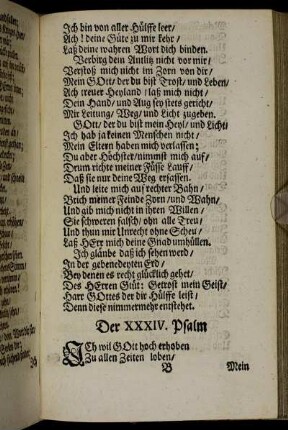 Ich bin von aller Hülffe leer/
Ach! deine Güte zu mir kehr/
Laß deine wahren Wort dich binden.
Verbirg dein Antlitz nicht vor mir/
Verstoß mich nicht im Zorn von dir/
Mein GOtt/ der du bist Trost/ und Leben/
Ach treuer Heyland/ laß mich nicht/
Dein Hand/ und Aug sey stets gericht/
Mir Leitung/ Weg/ und Licht zugeben.
GOtt/ der du bist mein Heyl/ und Licht/
Ich hab ja keinen Menschen nicht/
Mein Eltern haben mich verlassen;
Du aber Höchster/ nimmst mich auf/
Drum richte meiner Füsse Lauff/
Daß sie nur deine Weg erfassen.
Und leite mich auf rechter Bahn/
Brich meiner Feinde Zorn/ und Wahn/
Und gib mich nicht in ihren Willen/
Sie schweren falsch/ ohn alle Treu/
Und thun mir Unrecht ohne Scheu/
Laß HErr mich deine Gnad umhüllen.
Ich gläube daß ich sehen werd/
In der gebenedeyten Erd/
Bey denen es recht glücklich gehet/
Des HErren Güt: Getrost mein Geist/
Harr GOttes der dir Hülffe leist/
Denn diese nimmermehr entstehet.
Der XXXIV. Psalm
ICh wil GOtt hoch erhoben
Zu allen Zeiten loben/
B Mein